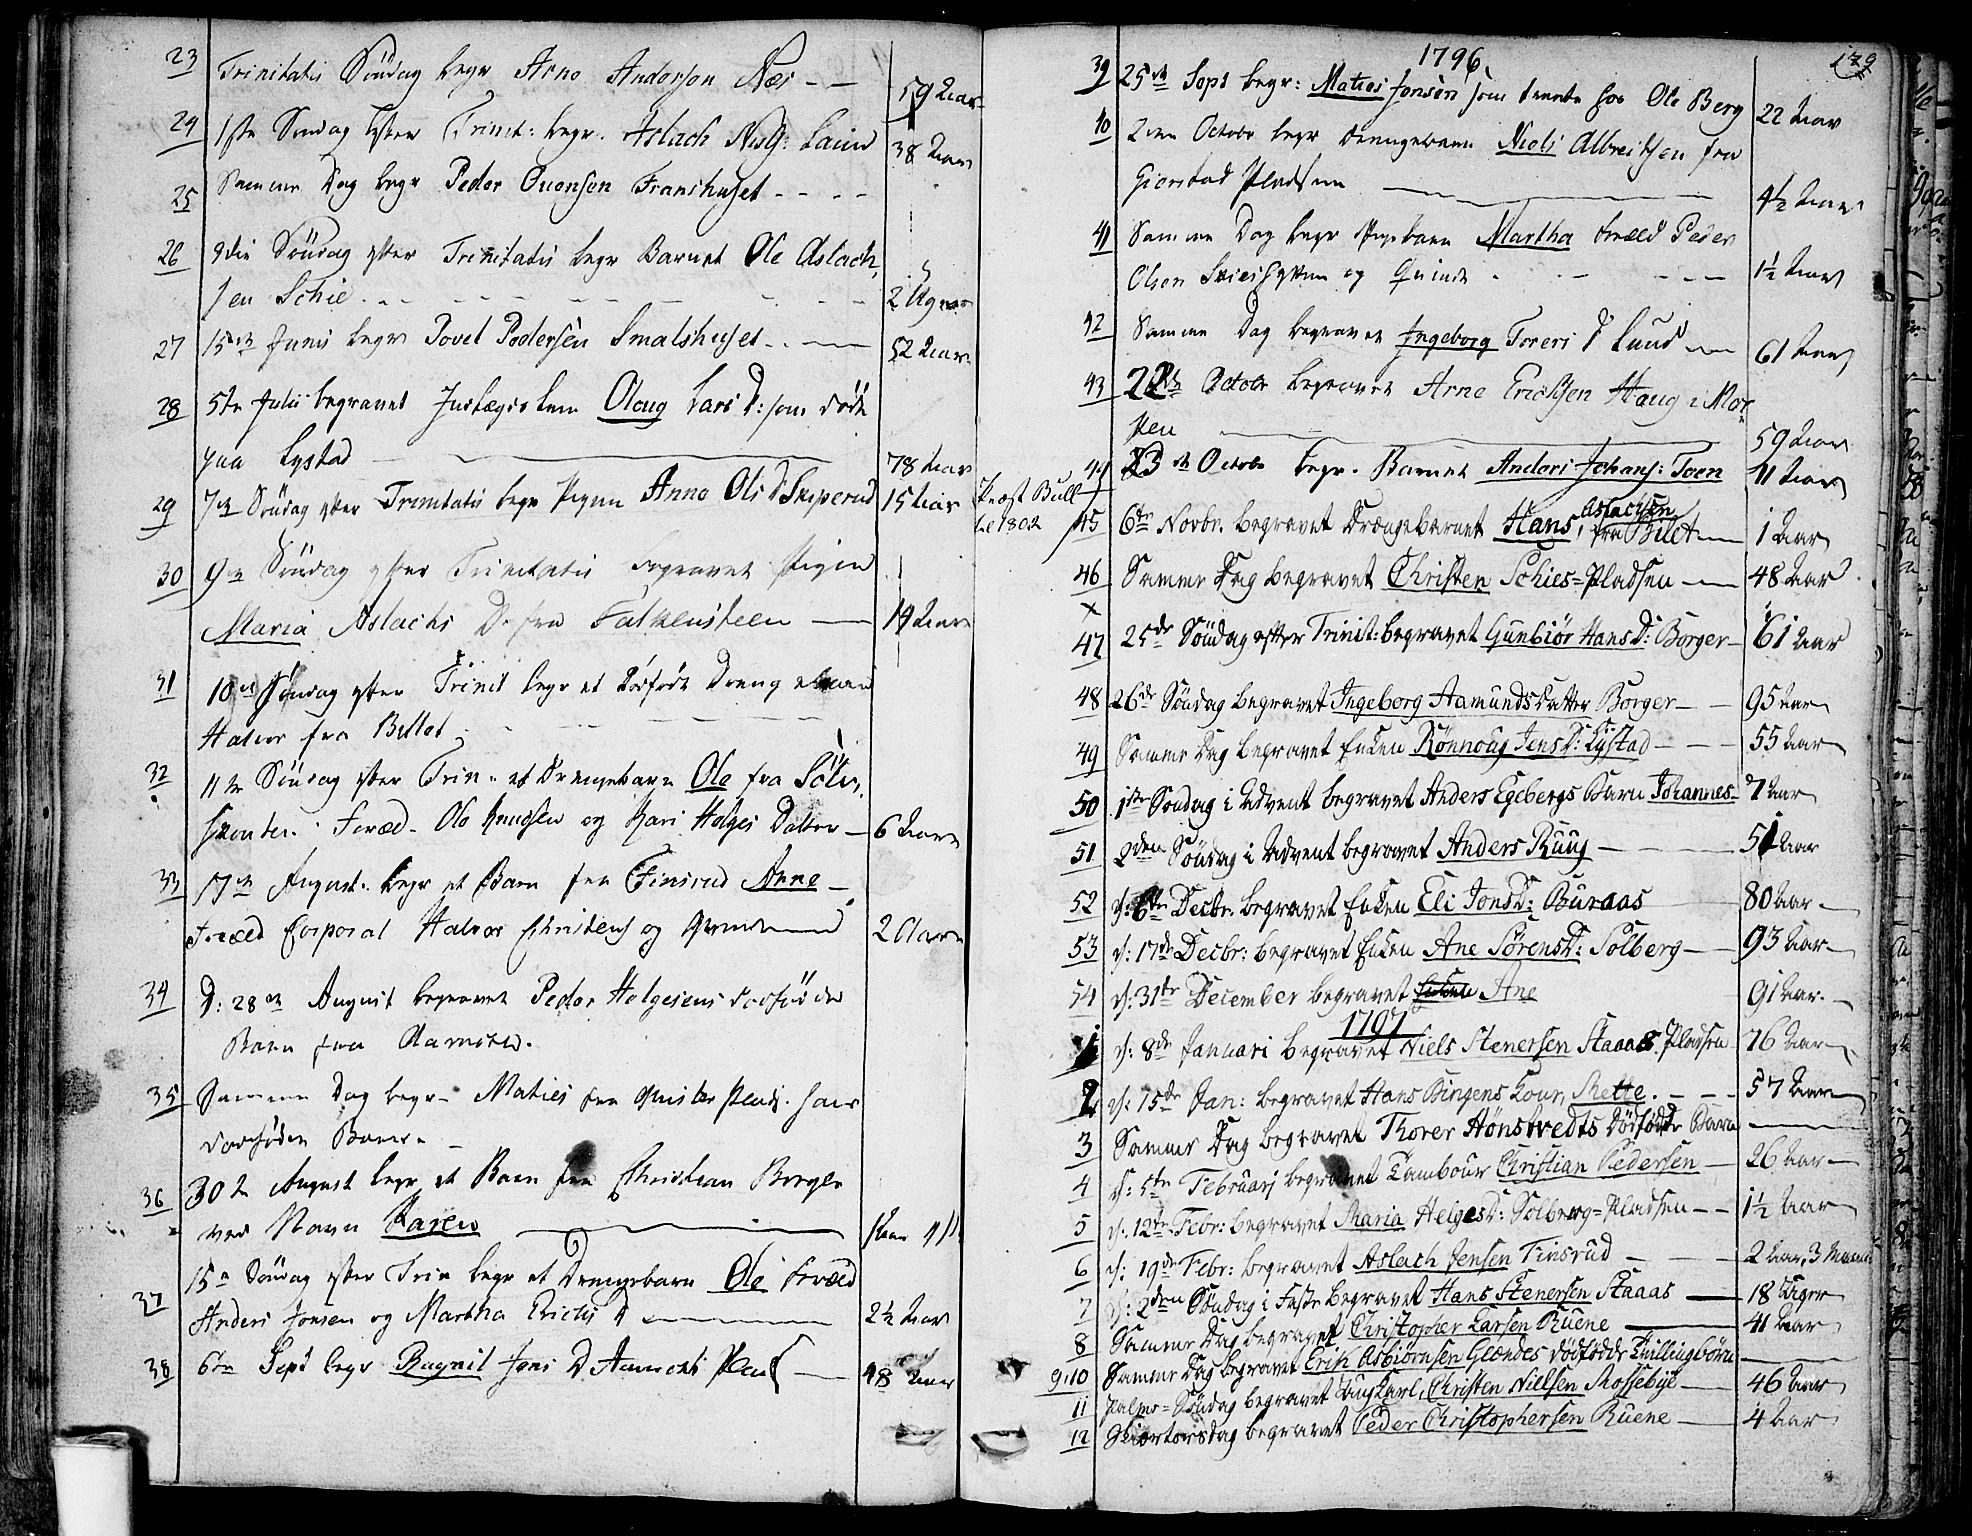 23 Trinitatis Söndag begr Arne Andersen Næs - - 59 Aar
24 1ste Söndag efter Trinit: begr. Aslach 38 Aar
25 Samme Dag begr Peder Evensen Franshuset - - - -
26 2den Söndag efter Trinitatis begr Barnet Ole Aslach,
sen Schie - - - 2 Uger
27 15de Junii begr Povel Pedersen Smalshuset - - 52 Aar
28 5te Julii begravet Olaug Lars D: som döde
paa Lystad 78 Aar
29 7de Söndag efter Trinitatis begr Pigen Anne Ols D Skiperud 15 Aar
30 9de Söndag efter Trinitatis begravet Pigen
Maria Aslachs D. fra Falkensteen 14 Aar
31 10de Söndag efter Trinit begr et Dödfödt Drengebarn
Halvor fra Billet
32 11te Söndag efter Trin. et Drengebarn Ole fra
Foræld. Ole Knudsen og Kari Helges Datter 6 Aar
33 17de August. begr et Barn fra Finsrud Anne
Foræld Corporal Halvor Christens og Qvinde 2 Aar
34 D: 28de August begravet Peder Helgesens dödfödde
Barn fra
35 Samme Dag begr. Maties fra Plads. hans
dödfödde Barn.
36 30te August begr et Barn fra Christian Borger
ved Navn Karen
37 15de Söndag efter Trin begr et Drengebarn Ole Foræld
Anders Jonsen og Martha Erichs D 2½ Aar
38 6te Sept begr Ragnil Jons D Plads 48 Aar
179
1796.
39 25de Sept begr: Maties Jonsen som tiente hos Ole Berg 22 Aar
40 2den Octobr begr Drengebarn Niels Albreitsen fra
Gierstad Pladsen 4½ Aar
41 Samme Dag begr Pigebarn Martha Foræld Peder
Olsen og Qvinde - - - 1½ Aar
42 Samme Dag begravet Ingeborg Torers D Luud 61 Aar
43 22de Octobr begravet Arne Erichsen Haug i Mor
sken 59 Aar
44 23de Octobr begr. Barnet Anders Johans: Toen 11 Aar
Præst Bull
til 1802
45 6te Novbr. begravet Drængebarnet Hans Aslachsen, fra Bilet 1 Aar
46 Samme Dag begravet Christen Schies=Pladsen 48 Aar
x
47 25de Söndag efter Trinit: begravet Gunbiör HansD: Borger 61 Aar
48 26de Söndag begravet Ingeborg Aamundsdatter Borger 95 Aar
49 Samme Dag begravet Enken Rönnoug JensD: Lystad 55 Aar
50 1ste Söndag i Advent begravet Anders Egebergs Barn Johannes 7 Aar
51 2den Söndag i Advent begravet Anders Ruug 51 Aar
52 d: 6te Decbr. begravet Enken Eli JonsD: Buraas 80 Aar
53 d: 17de Decbr: begravet Enken Ane SörensD: Solberg 93 Aar
54 d: 31te December begravet Enken Ane 91 Aar
1797
1 d: 8de Januari begravet Niels Stenersen Staaas Pladsen 76 Aar
2 d: 15de Jan: begravet Hans Bingens Kone, Mette. 57 Aar
3 Samme Dag begravet Thorer Hönstvedts dödfödde Barn
4 d: 5te Februarj begravet Tambour Christian Pedersen 26 Aar
5 d: 12te Febr: begravet Maria HelgesD: Solberg=Pladsen 1½ Aar
6 d: 19de Febr: begravet Aslach Jensen Finsrud 2 Aar, 3 Maan
7 d: 2den Söndag i Faste begravet Hans Stenersen Staaas 18 Uger
8 Samme Dag begravet Christopher Larsen Ruene 41 Aar
9.10 Samme Dag begravet Erik Asbiörnsen Glendes dödfödde Tvillingbörn
11 Palme=Söndag begravet Ungkarl, Christen Nielsen Mossebye 46 Aar
12 Skiertorsdag begravet Peder Christophersen Ruene 4 Aar